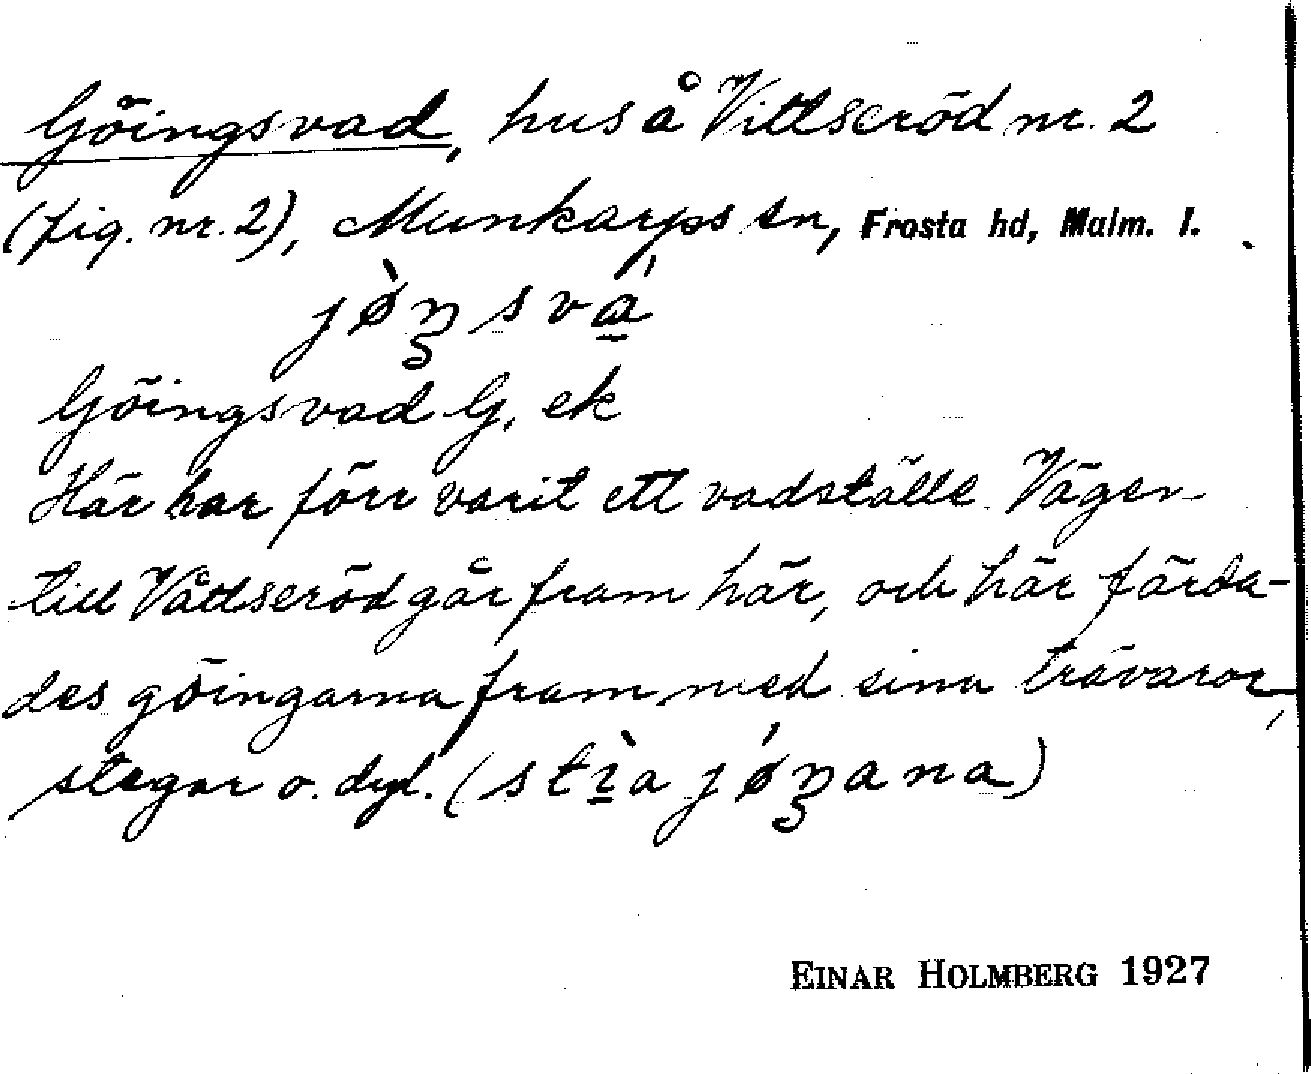 Göingsvad, hus å Vittseröd nr. 2
(fig. nr. 2), Munkarps sn, Frosta hd, Malm. l.
jø̀ŋsvá̱
Göingsvad G, ek
Här har förr varit ett vadställe. Vägen
till Våttseröd går fram här, och här färda-
des göingarna fram med sina trävaror,
stegar o. dyl. (stì̱a jǿŋana)
EINAR HOLMBERG 1927